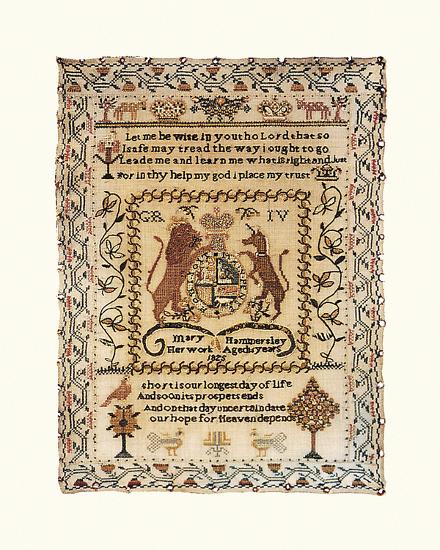 Let me be wise in youth o Lord that so
I safe may tread the way i ought to go
Leade me and learn me what is right and Just
For in thy help my god i place my trust
GR IV
Mary Hammersley
Her work Aged 11 years
1825
short is our longest day of life
And soon its prospets ends
And on that day uncertain date
our hope for Heaven depends